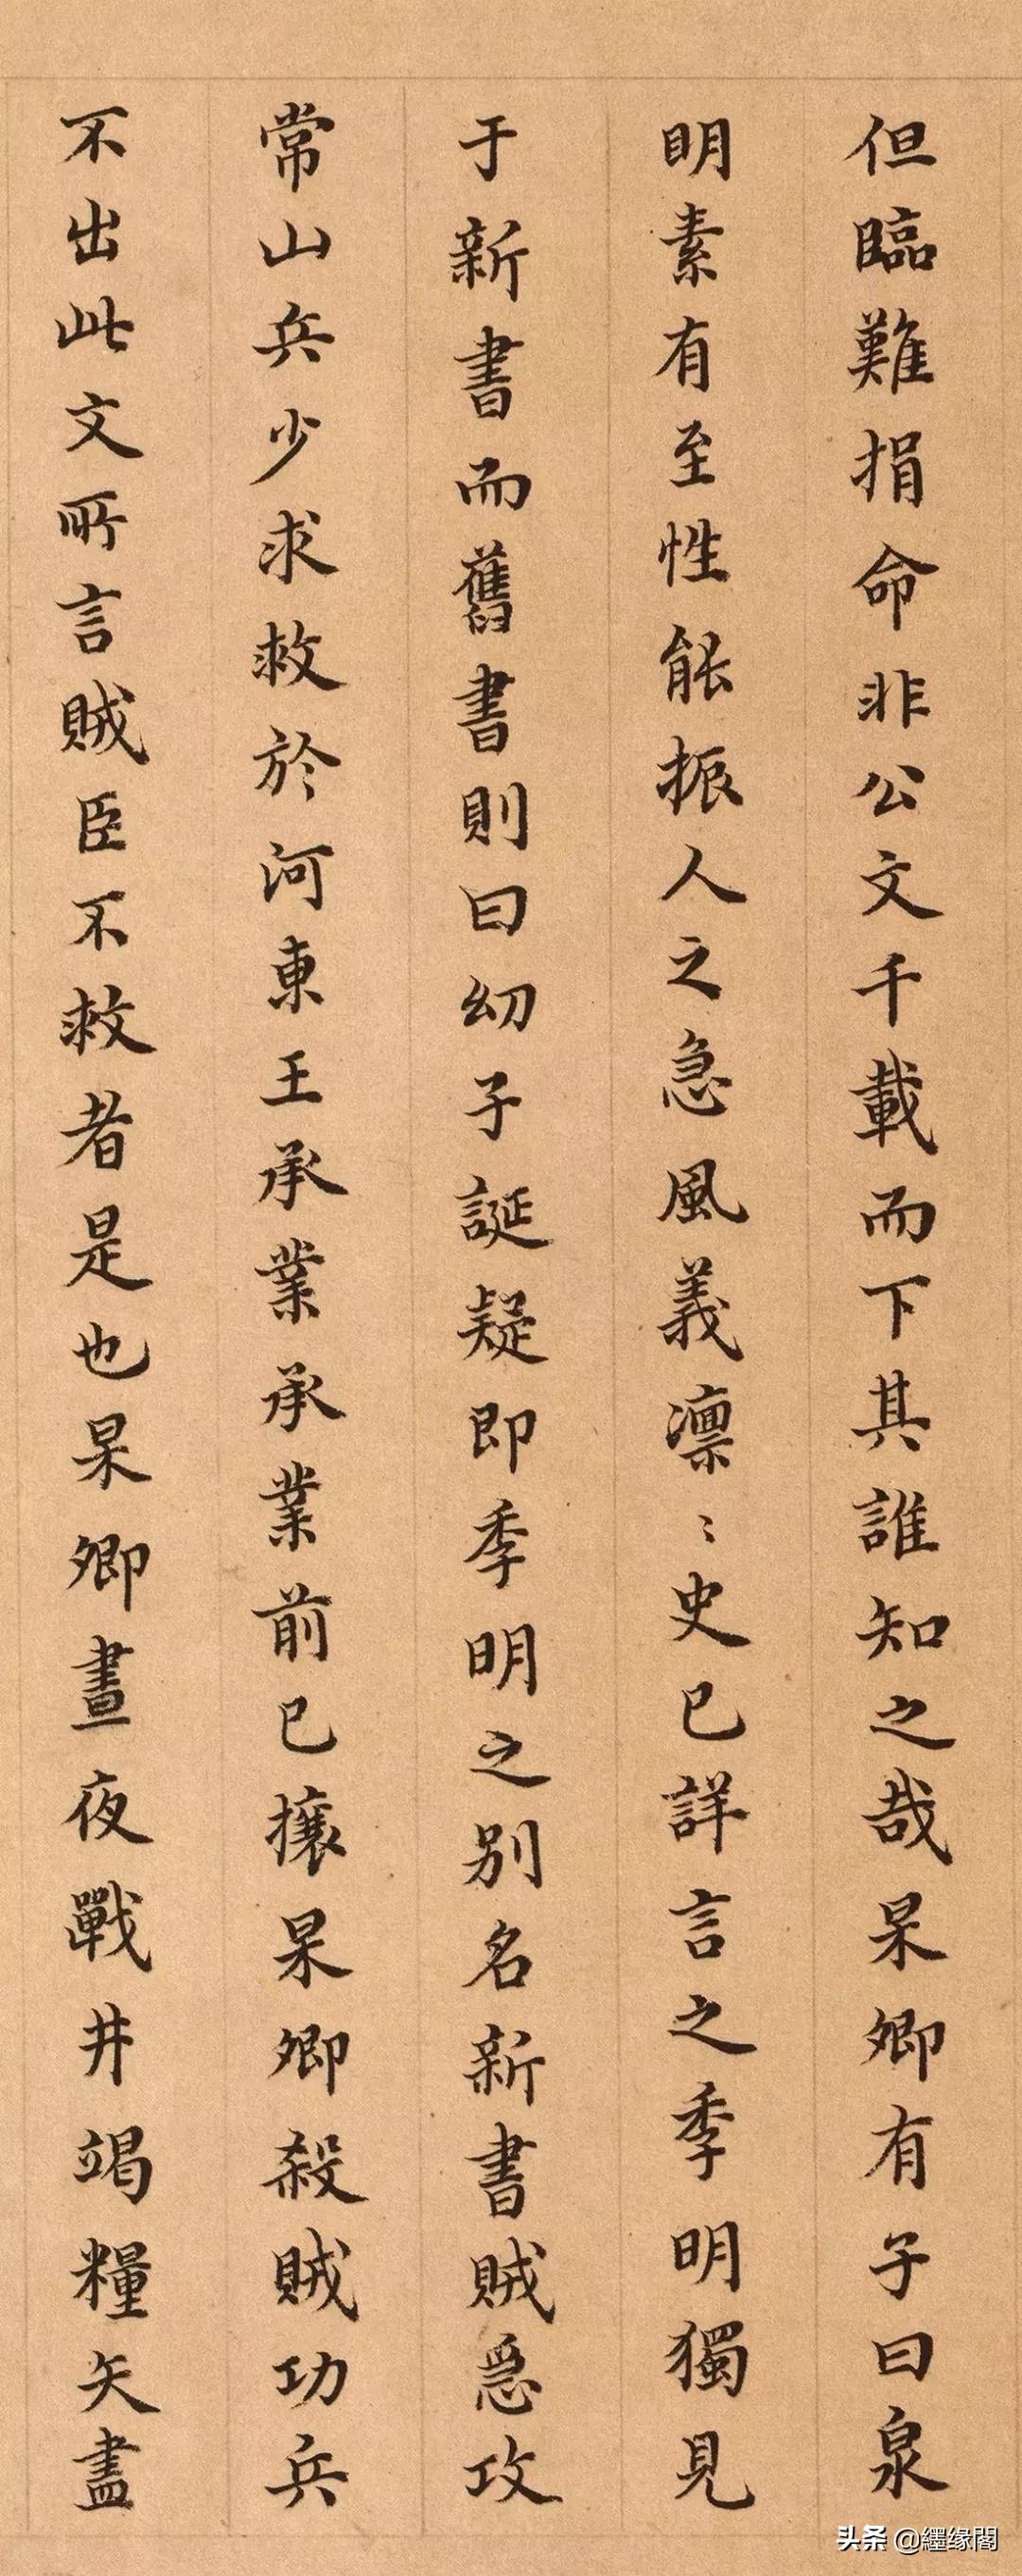 但臨難捐命非公文千載而下其誰知之哉杲卿有子曰泉
明素有至性能振人之急風義凛〻史已詳言之季明獨見
于新書而舊書則曰幼子誕疑即季明之别名新書賊急攻
常山兵少求救於河東王承業承業前已攘杲卿殺賊功兵
不出此文所言賊臣不救者是也杲卿晝夜戰井竭糧矢盡
头条 @纆缘閣